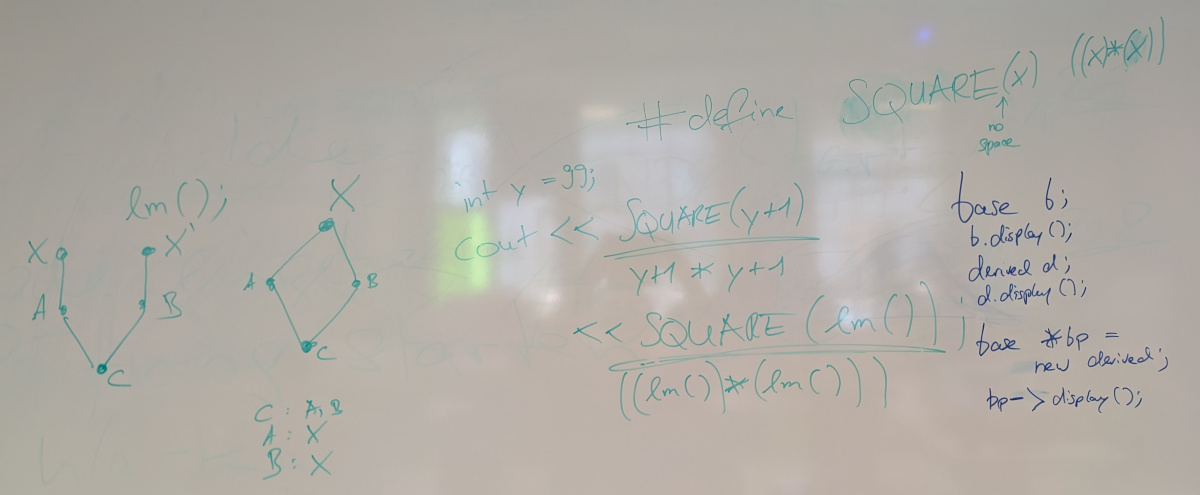 #define SQUARE(x) ((x)*(x))
↑
no
space
int y = 99;
cout << SQUARE(y+1)
y+1 * y+1
<< SQUARE(lm());
((lm())*(lm()))
lm();
X X'
A B
C
X
A B
C
C : A, B
A : X
B : X
base b;
b.display();
derived d;
d.display();
base *bp =
new derived;
bp->display();